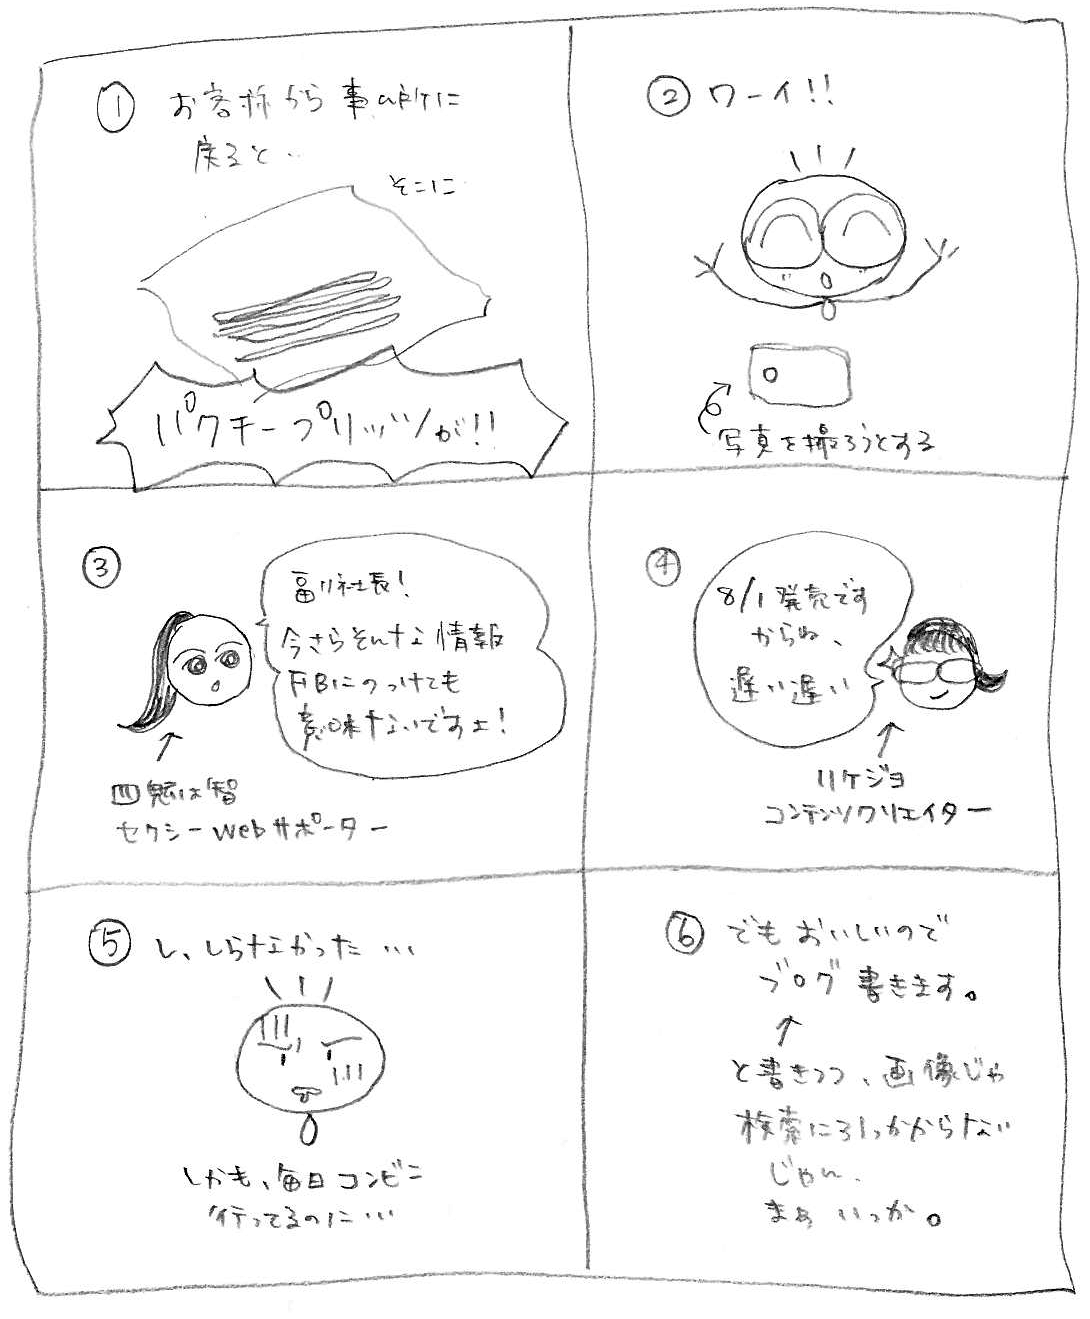 ① お客様から事務所に
戻ると..
そこに
パクチープリッツが!!
② ワーイ!!
写真を撮ろうとする
③
副社長!
今さらそんな情報
FBにのっけても
意味ないですよ!
セクシーWebサポーター
④
8/1発売です
からね、
遅い遅い
リケジョ
コンテンツクリエイター
⑤ し、しらなかった…
しかも、毎日コンビニ
行ってるのに…
⑥ でもおいしいので
ブログ書きます。
と書きつつ、画像じゃ
検索にひっかからない
じゃん、
まぁいっか。